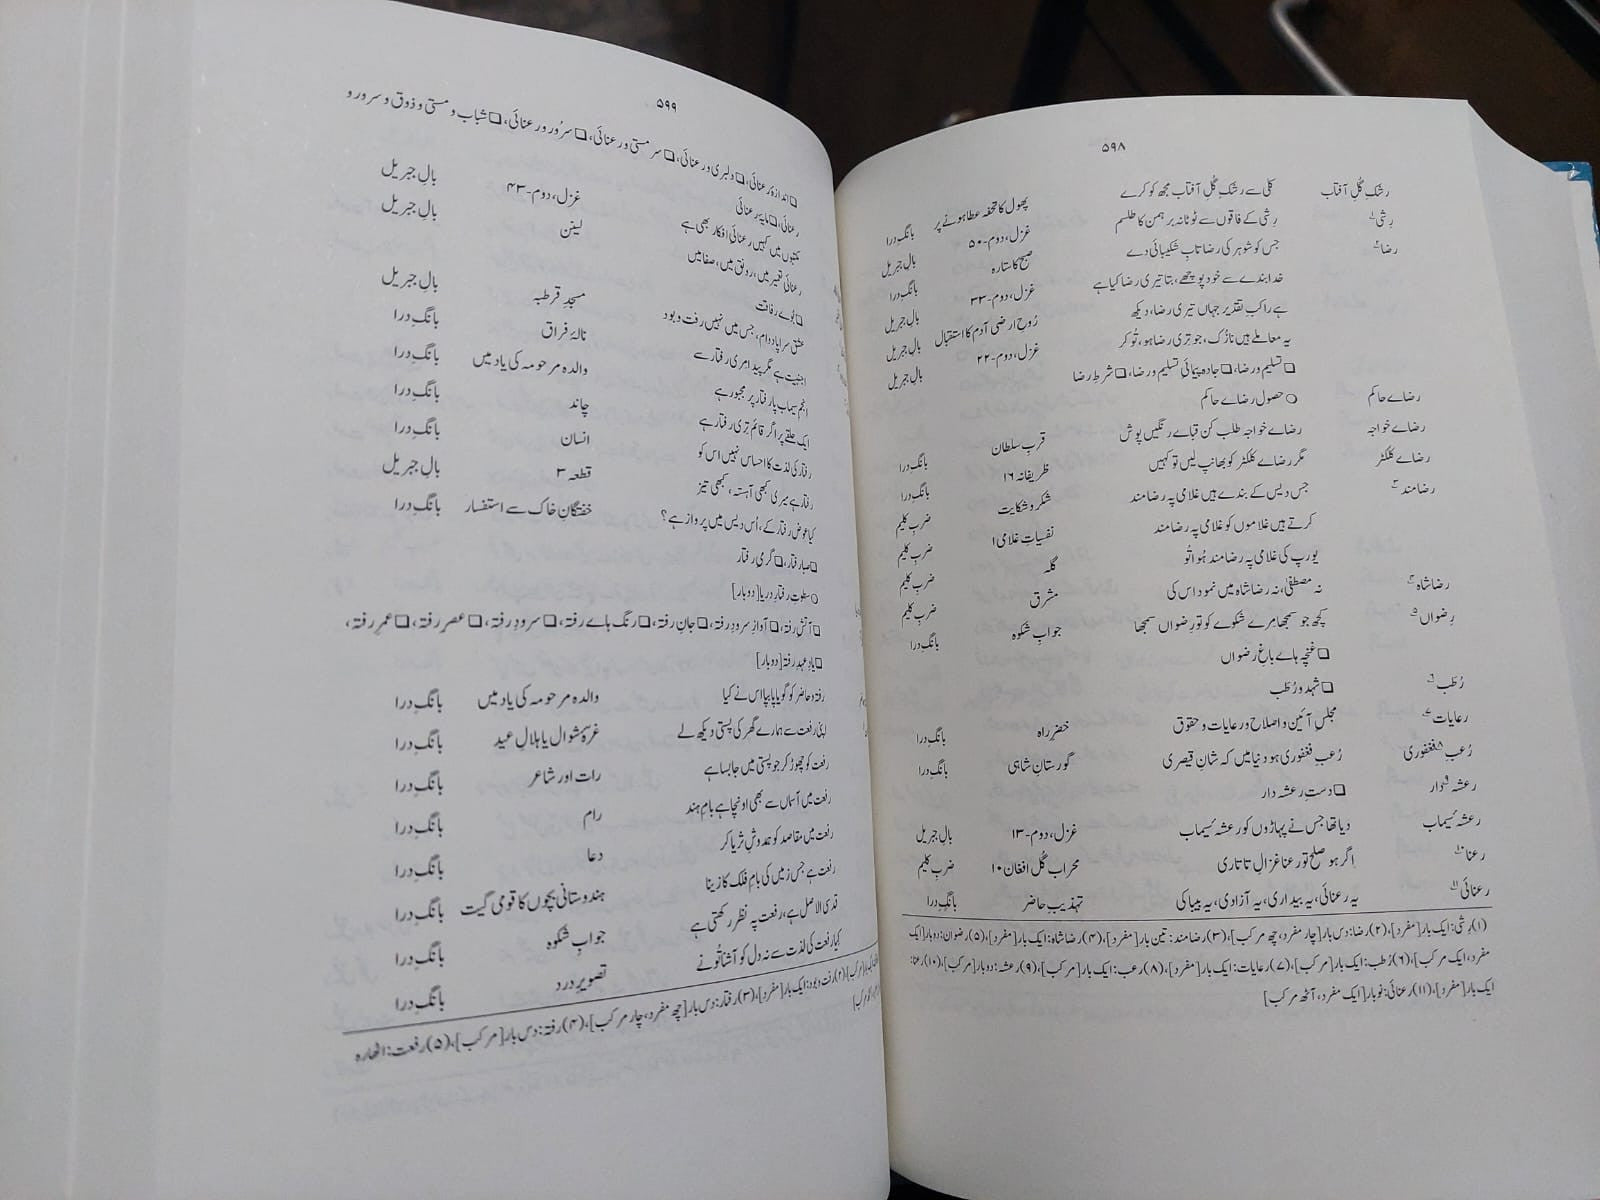 ۵۹۸
رشکِ گُلِ آفتاب کلی سے رشکِ گُلِ آفتاب مجھ کو کرے پھول کا تحفہ عطا ہونے پر بانگِ درا
رِشی۱ رِشی کے فاقوں سے ٹوٹا نہ برہمن کا طلسم غزل، دوم۔۵۰ بالِ جبریل
رضا۲ جس کو شوہر کی رضا تابِ شکیبائی دے صبح کا ستارہ بانگِ درا
خدا بندے سے خود پوچھے، بتا تیری رضا کیا ہے غزل، دوم۔۳۳ بالِ جبریل
ہے راکبِ تقدیرِ جہاں تیری رضا، دیکھ رُوحِ ارضی آدم کا استقبال بالِ جبریل
یہ معاملے ہیں نازُک، جو تِری رضا ہو، تُو کر غزل، دوم۔۲۲ بالِ جبریل
□ تسلیم و رضا، □ جادہ پیمائی تسلیم و رضا، □ شرطِ رضا
رضاے حاکم ○ حصولِ رضاے حاکم
رضاے خواجہ رضاے خواجہ طلب کن قباے رنگیں پوش قربِ سلطان بانگِ درا
رضاے کلکٹر مگر رضاے کلکٹر کو بھانپ لیں تو کہیں ظریفانہ ۱۶ بانگِ درا
رضامند۳ جس دیس کے بندے ہیں غلامی پہ رضامند شکر و شکایت ضربِ کلیم
کرتے ہیں غلاموں کو غلامی پہ رضامند نفسیاتِ غلامی ۱ ضربِ کلیم
یورپ کی غلامی پہ رضامند ہُوا تُو گلہ ضربِ کلیم
رضا شاہ۴ نہ مصطفیٰ، نہ رضا شاہ میں نمود اس کی مشرق ضربِ کلیم
رِضواں۵ کچھ جو سمجھا مِرے شکوے کو تو رِضواں سمجھا جوابِ شکوہ بانگِ درا
□ غنچہ ہاے باغِ رضواں
رُطَب۶ □ شہد و رُطَب
رعایات۷ مجلسِ آئین و اصلاح و رعایات و حقوق خضرِ راہ بانگِ درا
رُعبِ۸ فغفوری رُعبِ فغفوری ہو دنیا میں کہ شانِ قیصری گورستانِ شاہی بانگِ درا
رعشہ۹ دار □ دستِ رعشہ دار
رعشۂ سیماب دیا تھا جس نے پہاڑوں کو رعشۂ سیماب غزل، دوم۔۱۳ بالِ جبریل
رعنا۱۰ اگر ہو صلح تو رعنا غزالِ تاتاری محراب گُل افغان ۱۰ ضربِ کلیم
رعنائی۱۱ یہ رعنائی، یہ بیداری، یہ آزادی، یہ بیباکی تہذیبِ حاضر بانگِ درا
(۱) رشی: ایک بار [مفرد]، (۲) رضا: دس بار [چار مفرد، چھ مرکب]، (۳) رضامند: تین بار [مفرد]، (۴) رضا شاہ: ایک بار [مفرد]، (۵) رضوان: دو بار [ایک
مفرد، ایک مرکب]، (۶) رُطب: ایک بار [مرکب]، (۷) رعایات: ایک بار [مفرد]، (۸) رعب: ایک بار [مرکب]، (۹) رعشہ: دو بار [مرکب]، (۱۰) رعنا:
ایک بار [مفرد]، (۱۱) رعنائی: نو بار [ایک مفرد، آٹھ مرکب]
۵۹۹
□ اندازۂ رعنائی، □ دلبری و رعنائی، □ سرمستی و رعنائی، □ سرُور و رعنائی، □ شباب و مستی و ذوق و سرور و
رعنائی، □ مایۂ رعنائی
مکتبوں میں کہیں رعنائیِ افکار بھی ہے غزل، دوم۔۴۳ بالِ جبریل
رعنائیِ تعمیر میں، رونق میں، صفا میں لینن بالِ جبریل
□ بُوے رفاقت
عشق سراپا دوام، جس میں نہیں رفت و بود مسجدِ قرطبہ بالِ جبریل
اجنبیت ہے مگر پیدا مری رفتار سے نالۂ فراق بانگِ درا
انجمِ سیماب پا رفتار پر مجبور ہے والدہ مرحومہ کی یاد میں بانگِ درا
ایک حلقے پر اگر قائم تِری رفتار ہے چاند بانگِ درا
رفتار کی لذت کا احساس نہیں اس کو انسان بانگِ درا
رفتار ہے میری کبھی آہستہ، کبھی تیز قطعہ ۳ بالِ جبریل
کیا عوض رفتار کے، اُس دیس میں پرواز ہے؟ خفتگانِ خاک سے استفسار بانگِ درا
□ صبا رفتار، □ گرمیِ رفتار
○ سطوتِ رفتارِ دریا [دو بار]
□ آتشِ رفتہ، □ آوازِ سرودِ رفتہ، □ جانِ رفتہ، □ رنگ ہاے رفتہ، □ سرودِ رفتہ، □ عصرِ رفتہ، □ عمرِ رفتہ،
□ یادِ عہدِ رفتہ [دو بار]
رفتہ و حاضر کو گویا پا بپا اس نے کیا والدہ مرحومہ کی یاد میں بانگِ درا
اپنی رفعت سے ہمارے گھر کی پستی دیکھ لے غرۂ شوال یا ہلالِ عید بانگِ درا
رفعت کو چھوڑ کر جو پستی میں جا بسا ہے رات اور شاعر بانگِ درا
رفعت میں آسماں سے بھی اونچا ہے بامِ ہند رام بانگِ درا
رفعت میں مقاصد کو ہمدوشِ ثریا کر دعا بانگِ درا
رفعت ہے جس زمیں کی بامِ فلک کا زینا ہندوستانی بچوں کا قومی گیت بانگِ درا
قدسی الاصل ہے، رفعت پہ نظر رکھتی ہے جوابِ شکوہ بانگِ درا
کیا رفعت کی لذت سے نہ دل کو آشنا تُو نے تصویرِ درد بانگِ درا
ایک بار [مرکب]، (۲) رفت و بود: ایک بار [مفرد]، (۳) رفتار: دس بار [چھ مفرد، چار مرکب]، (۴) رفتہ: دس بار [مرکب]، (۵) رفعت: اٹھارہ